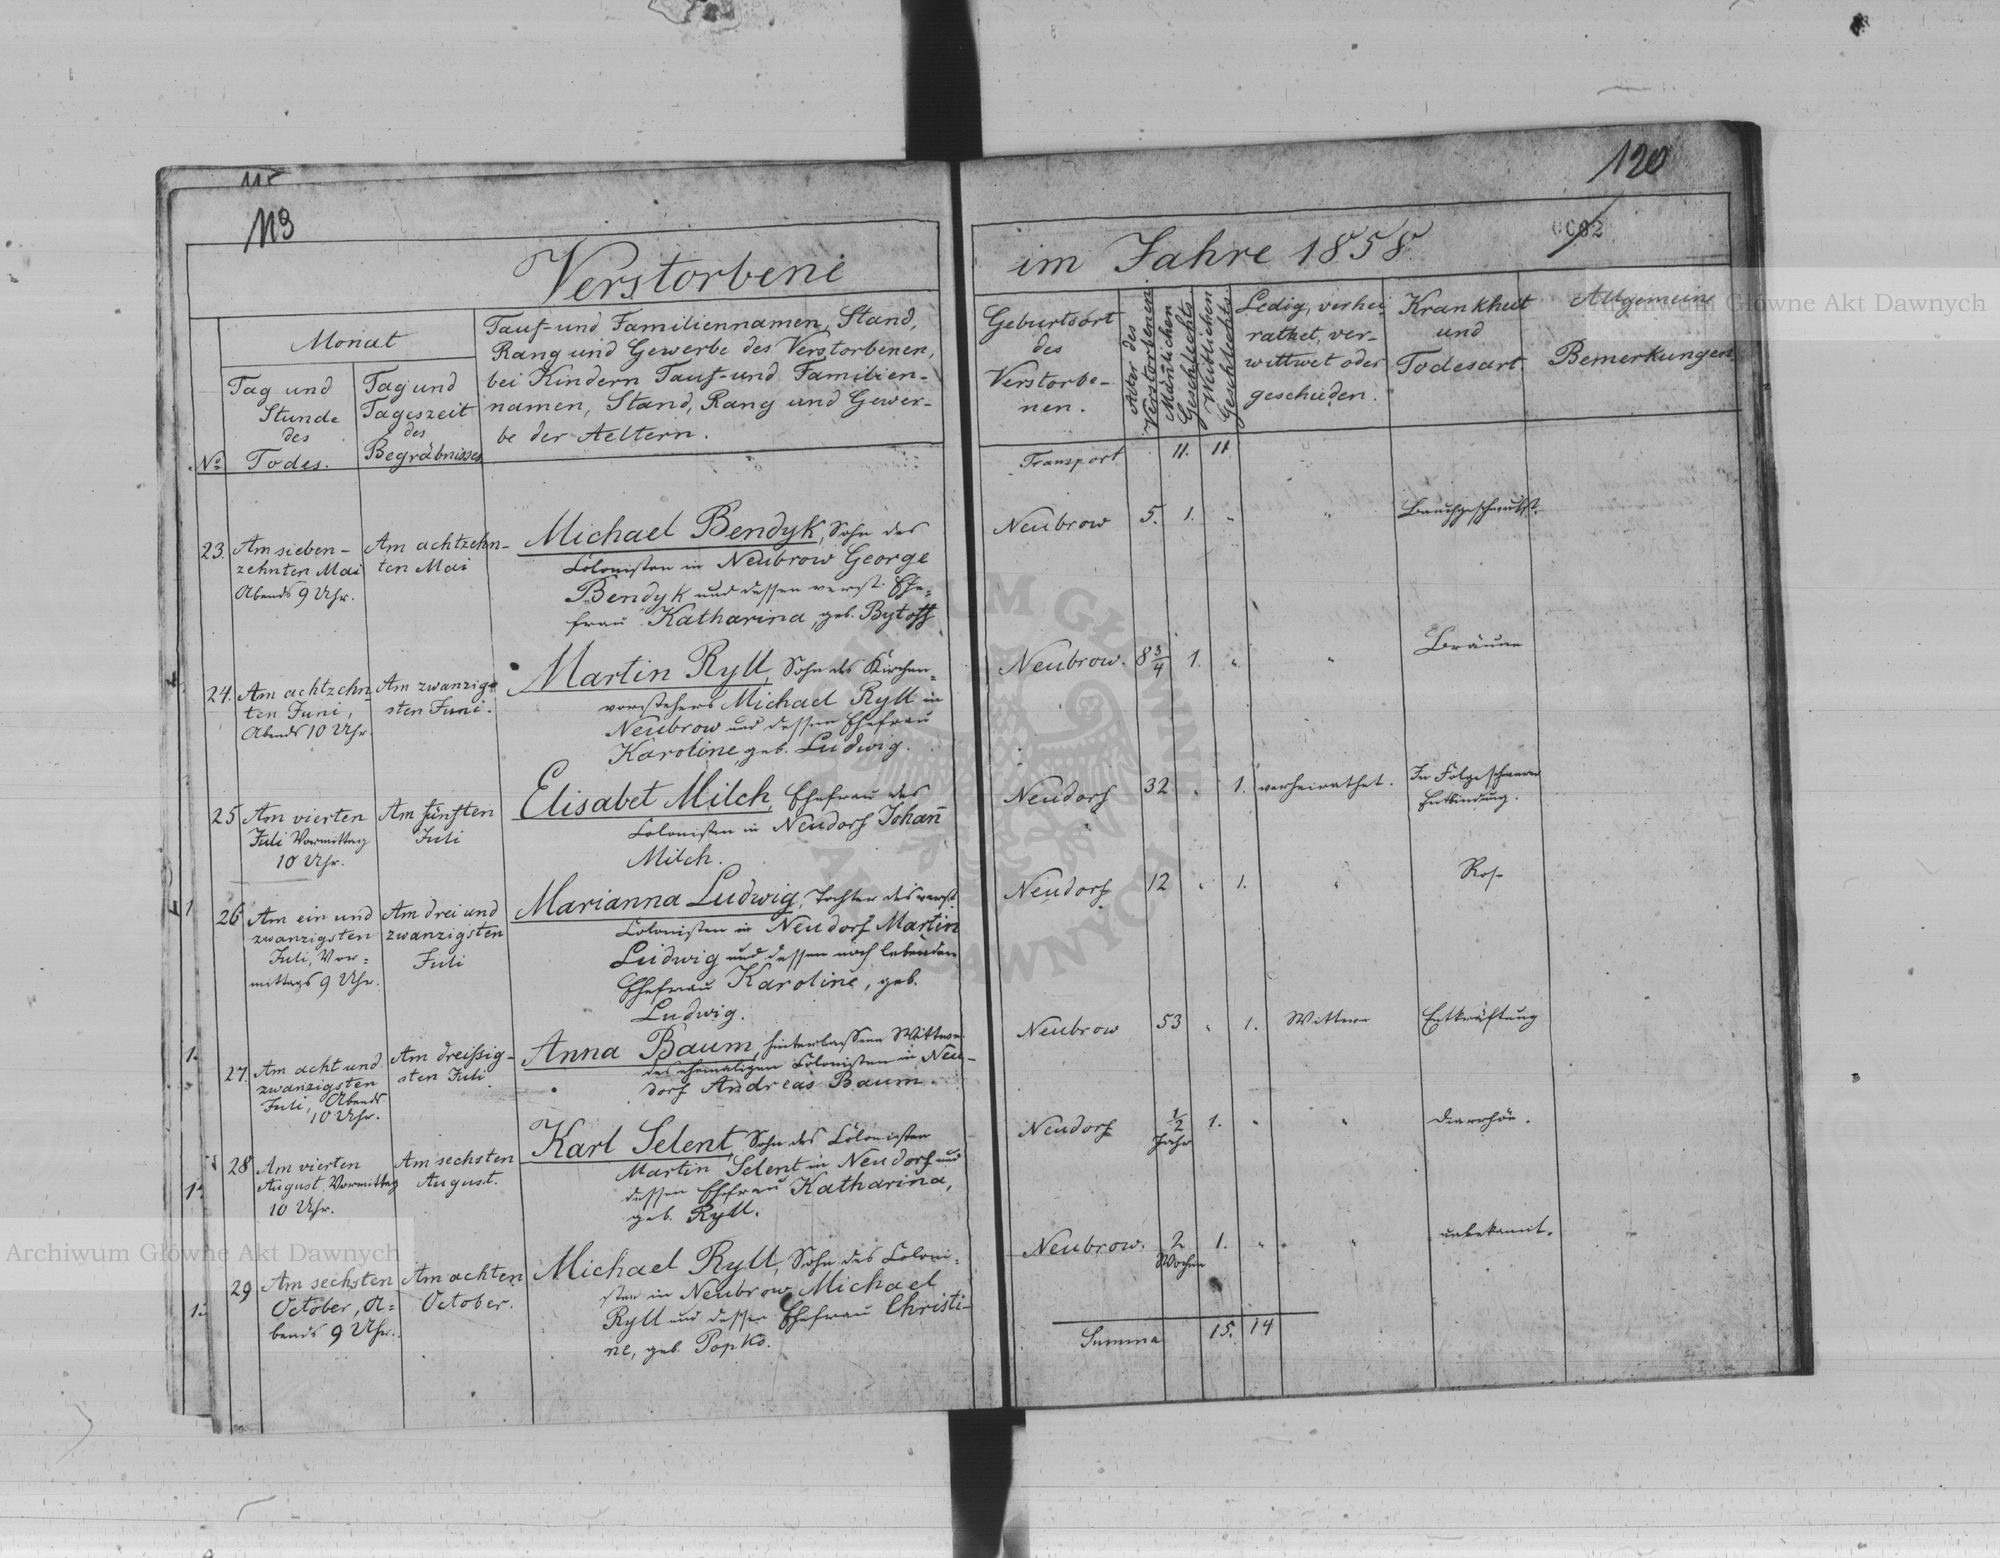 115
113
Verstorbene
Monat
Tauf- und Familiennamen, Stand,
Rang und Gewerbe des Verstorbenen,
bei Kindern Tauf- und Familien-
namen, Stand, Rang und Gewer-
be der Aeltern.
Tag und
Stunde
des
Todes.
Tag und
Tageszeit
des
Begräbnisses
No
23.
Am sieben-
zehnten Mai
Abends 9 Uhr.
Am achtzehn-
ten Mai
Michael Bendyk, Sohn des
Colonisten in Neubrow George
Bendyk und dessen verst. Ehe-
frau Katharina, geb. Bytoff
24.
Am achtzehn-
ten Juni,
Abends 10 Uhr
Am zwanzig-
sten Juni.
Martin Ryll, Sohn des Kirchen-
vorstehers Michael Ryll in
Neubrow und dessen Ehefrau
Karoline, geb. Ludwig.
25
Am vierten
Juli Vormittag
10 Uhr.
Am fünften
Juli
Elisabet Milch, Ehefrau des
Colonisten in Neudorf Johan̄
Milch.
1
26
Am ein und
zwanzigsten
Juli, Vor=
mittags 9 Uhr.
Am drei und
zwanzigsten
Juli
Marianna Ludwig, Tochter des verst.
Colonisten in Neudorf Martin
Ludwig und dessen noch lebenden
Ehefrau Karoline, geb.
Ludwig.
1.
27.
Am acht und
zwanzigsten
Juli, Abends
10 Uhr.
Am dreißig-
sten Juli
Anna Baum, hinterlassene Wittwe
des ehemaligen Colonisten in Neu-
dorf Andreas Baum.
1.
28
Am vierten
August, Vormittag
10 Uhr.
Am sechsten
August.
Karl Selent, Sohn des Colonisten
Martin Selent in Neudorf und
dessen Ehefrau Katharina,
geb. Ryll.
1.
29
Am sechsten
October, A=
bends 9 Uhr.
Am achten
October.
Michael Ryll, Sohn des Coloni-
sten in Neubrow Michael
Ryll und dessen Ehefrau Christi-
ne, geb. Popko.
120
0082
im Jahre 1858
Geburtsort
des
Verstorbe-
nen.
Alter des
Verstorbenen.
Mänlichen
Geschlechts.
Weiblichen
Geschlechts.
Ledig, verhei-
rathet, ver-
wittwet oder
geschieden.
Krankheit
und
Todesart
Allgemeine
Bemerkungen
Transport 11. 11
Neubrow 5. 1. " "
Neubrow. 8 3/4 1. " " Bräune
Neudorf 32 " 1. verheirathet. In Folge schwerer
Entbindung.
Neudorf 12 " 1. " Rose
Neubrow 53 " 1. Wittwe Entkräftung
Neudorf 1/2 1. " " Diarrhöe.
Jahr
Neubrow. 2 1. " " unbekannt.
Wochen
Summa 15. 14
Archiwum Główne Akt Dawnych
Archiwum Główne Akt Dawnych
ARCHIWUM GŁÓWNE AKT DAWNYCH